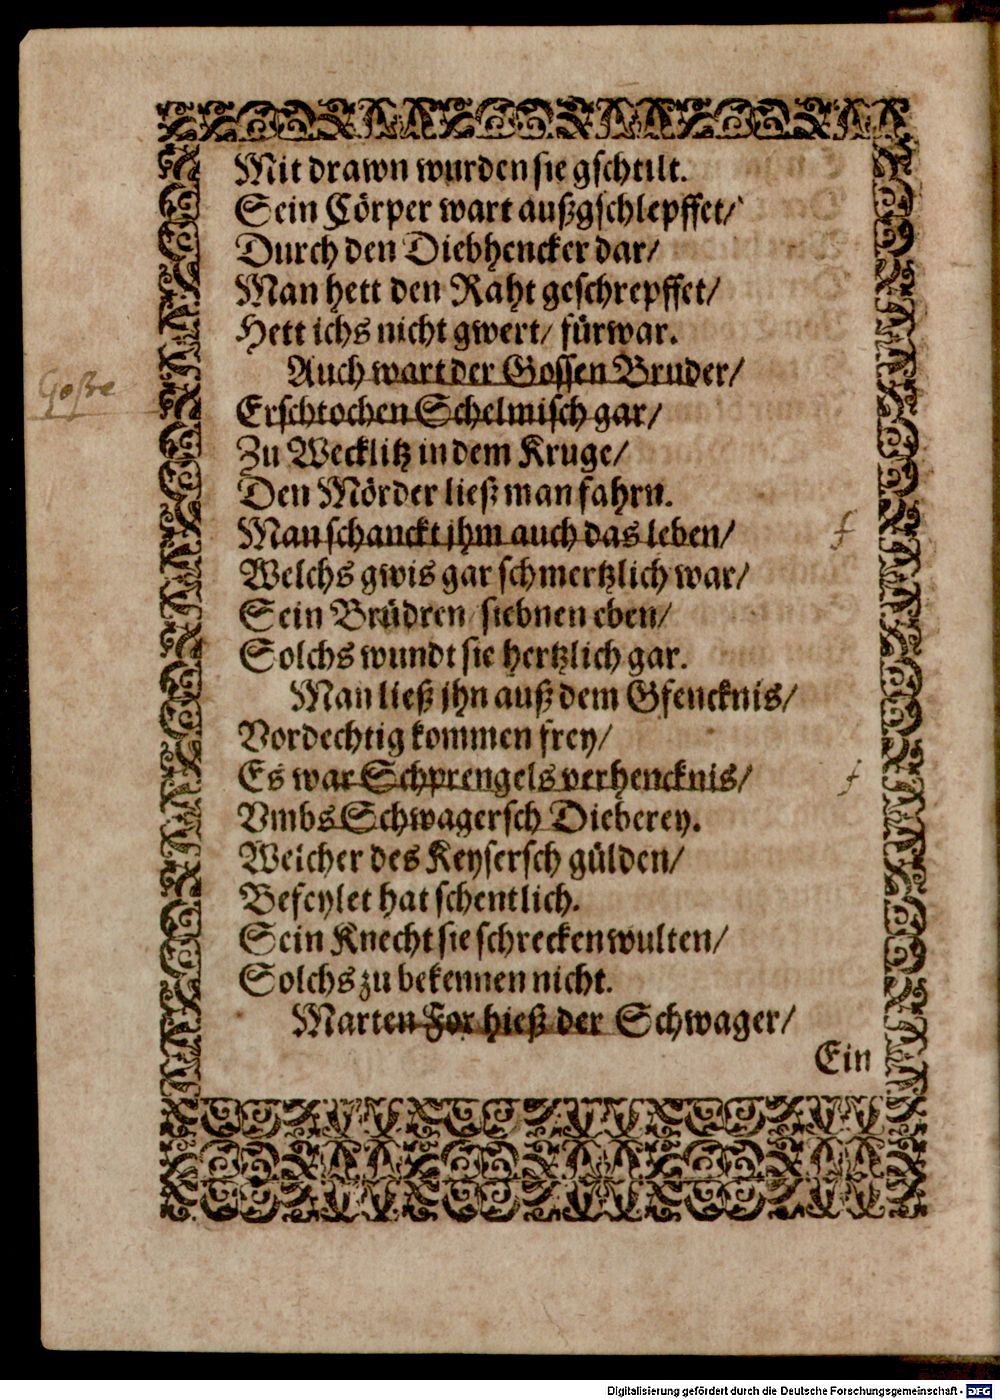 Mit drawn wurden sie gschtilt.
Sein Cörper wart außgschlepffet/
Durch den Diebhencker dar/
Man hett den Raht geschrepffet/
Hett ichs nicht gwert/ fürwar.
Auch wart der Gossen Bruder/
Goßre
Erschtochen Schelmisch gar/
Zu Wecklitz in dem Kruge/
Den Mörder ließ man fahrn.
Man schanckt jhm auch das leben/
Welchs gwis gar schmertzlich war/
Sein Brüdren/ siebnen eben/
Solchs wundt sie hertzlich gar.
Man ließ jhn auß dem Gfencknis/
Vordechtig kommen frey/
Es war Schprengels verhencknis/
Vmbs Schwagersch Dieberey.
Welcher des Keysersch gülden/
Befeylet hat schentlich.
Sein Knecht sie schrecken wulten/
Solchs zu bekennen nicht.
Marten For hieß der Schwager/
Ein
Digitalisierung gefördert durch die Deutsche Forschungsgemeinschaft - DFG